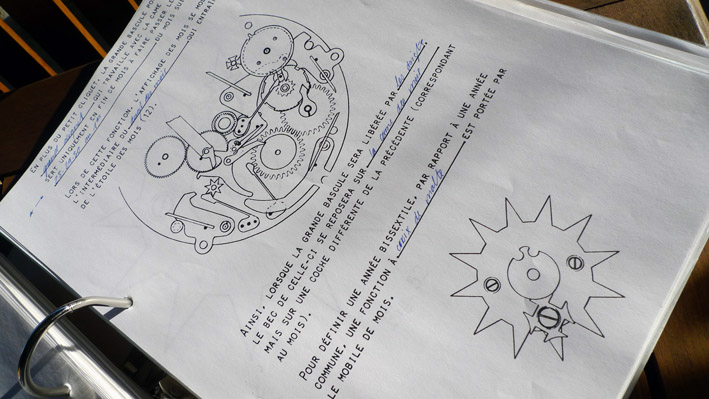 EN PLUS DU PETIT CLIQUET, LA GRANDE BASCULE PO
QUI TRAVAILLE AVEC LA CAME
SERT UNIQUEMENT EN FIN DE MOIS À FAIRE PASSER LE
DU MOIS SUI
LORS DE CETTE FONCTION, L'AFFICHAGE DES MOIS SE MO
L'INTERMÉDIAIRE DU QUI ENTRAÎ
DE L'ÉTOILE DES MOIS (12).
AINSI, LORSQUE LA GRANDE BASCULE SERA LIBÉRÉE PAR
LE BEC DE CELLE-CI SE REPOSERA SUR
MAIS SUR UNE COCHE DIFFÉRENTE DE LA PRÉCÉDENTE (CORRESPONDANT
AU MOIS).
POUR DÉFINIR UNE ANNÉE BISSEXTILE, PAR RAPPORT À UNE ANNÉE
COMMUNE, UNE FONCTION À croix de malte EST PORTÉE PAR
LE MOBILE DE MOIS.